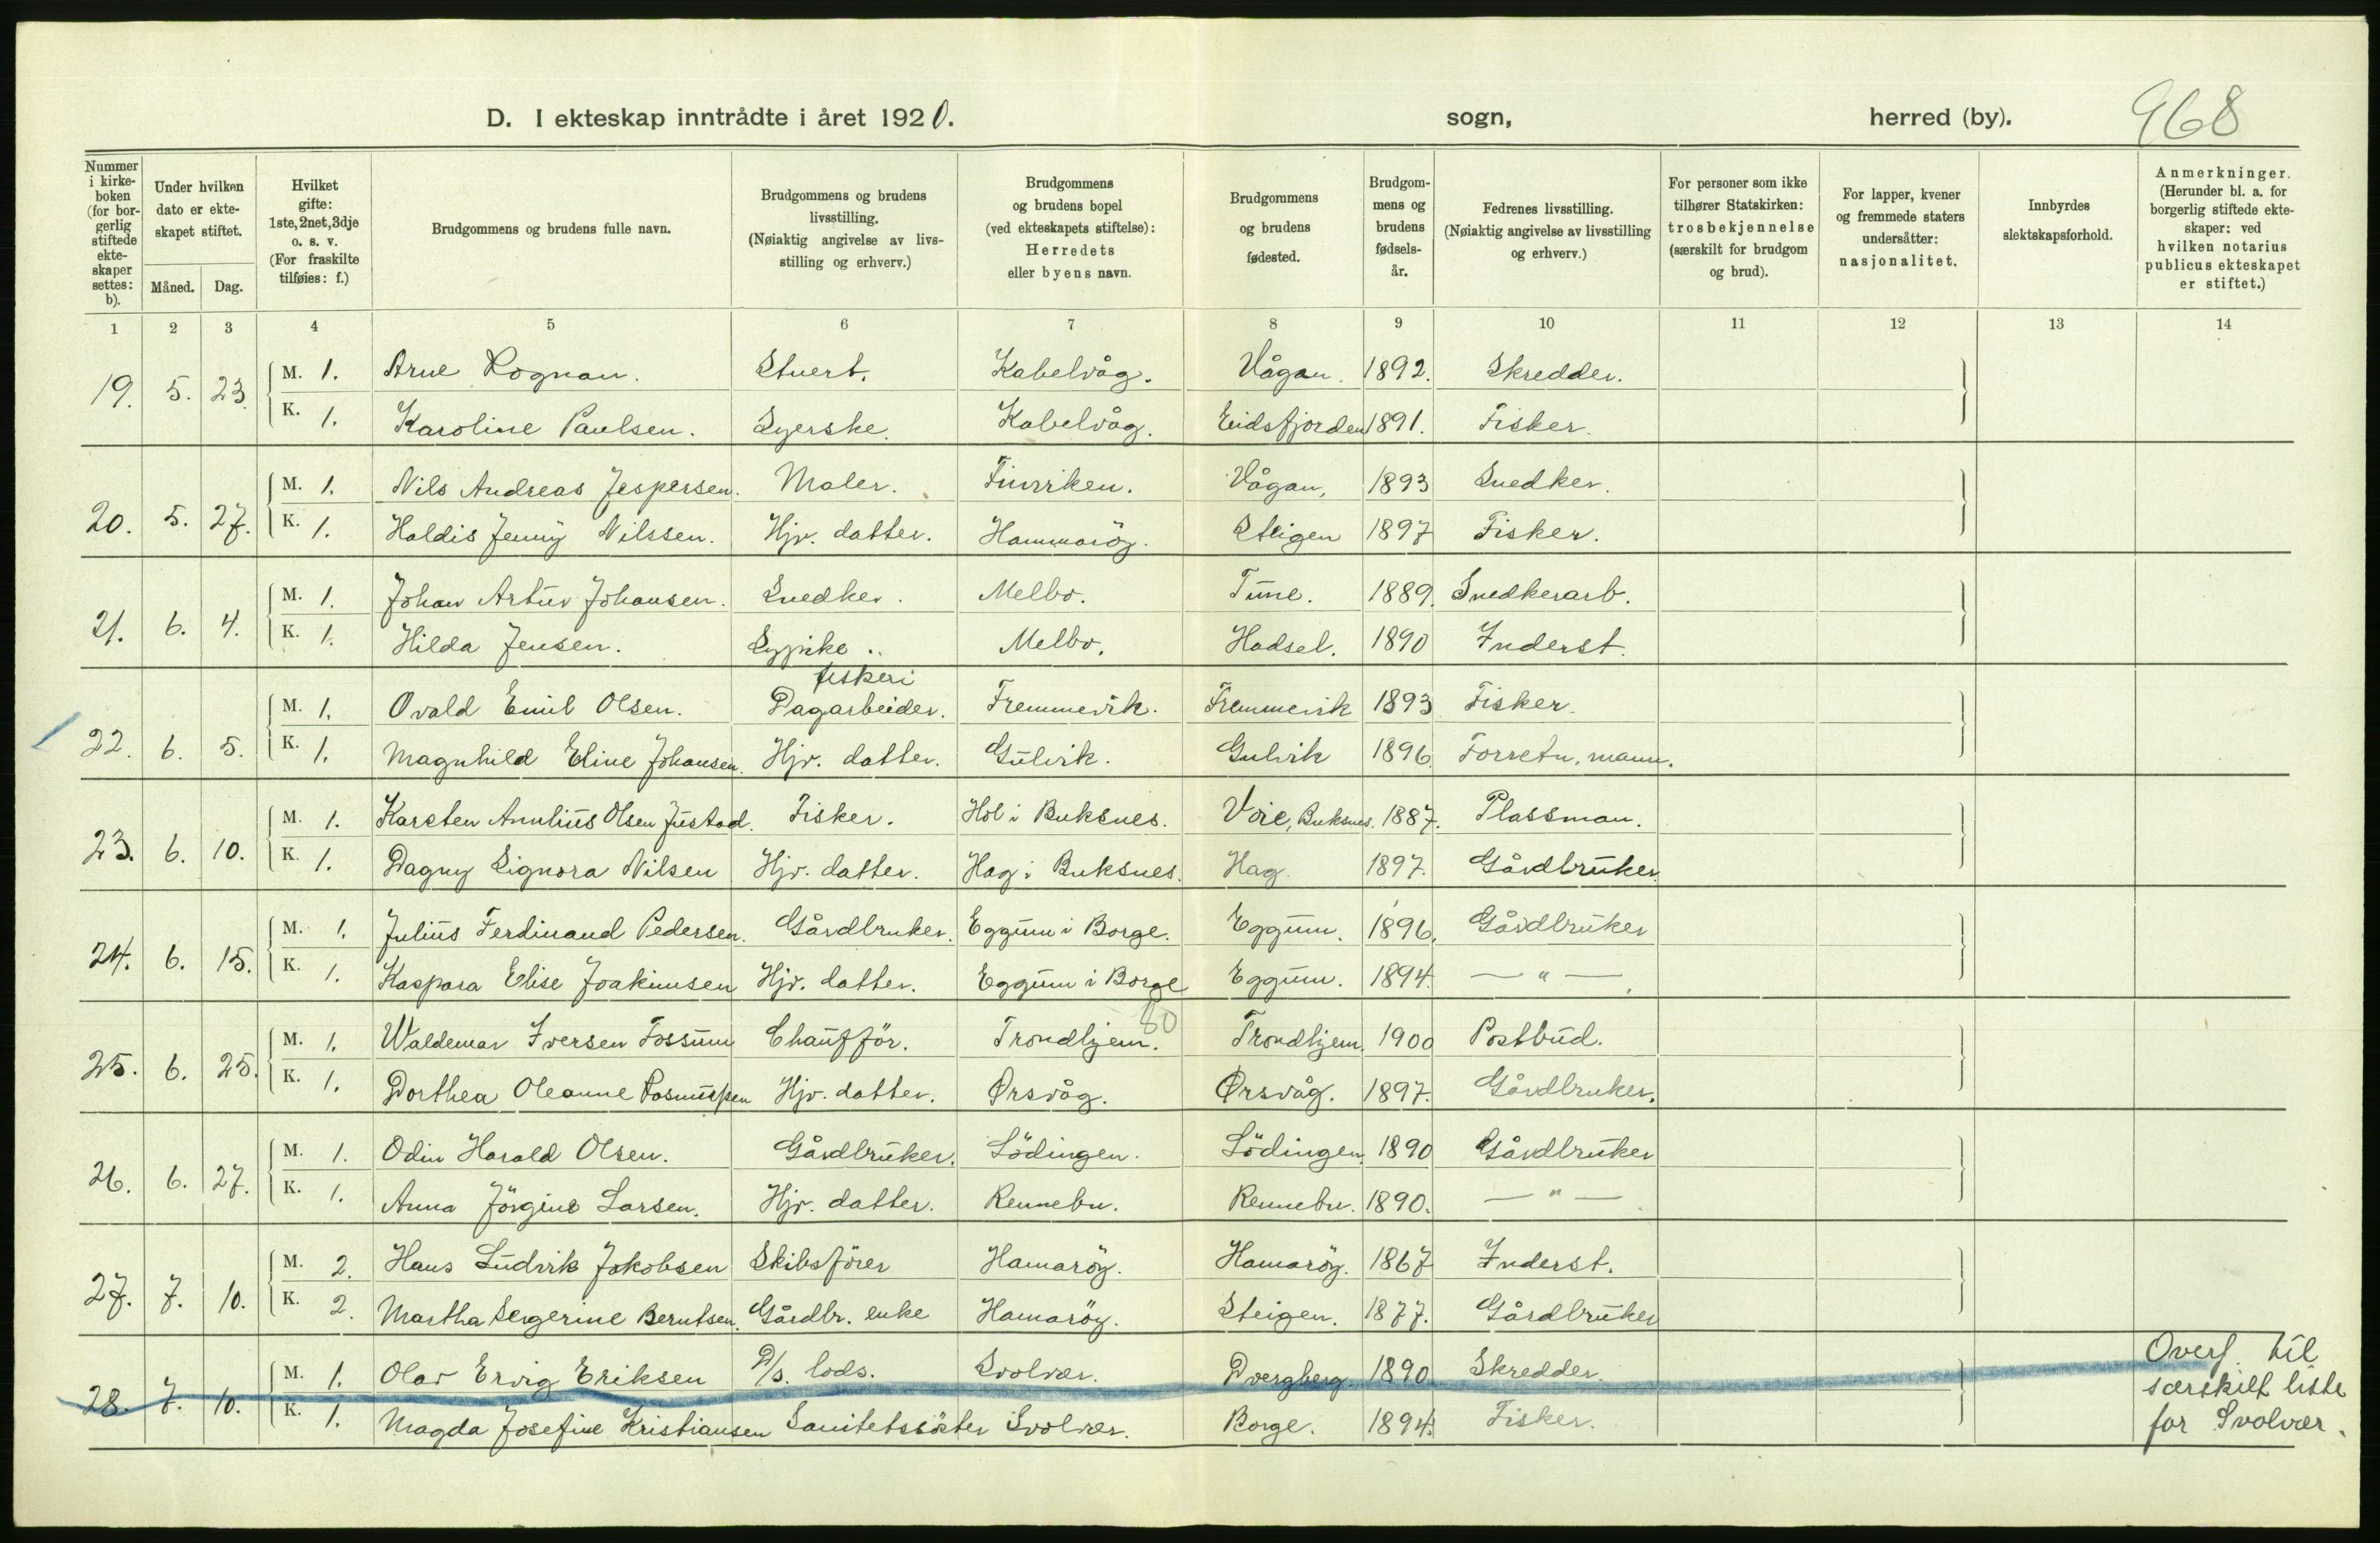 D. I ekteskap inntrådte i året 1920. sogn, herred (by). 968
Nummer i kirkeboken (for borgerlig stiftede ekteskaper settes: b). Under hvilken dato er ekteskapet stiftet. Måned. Dag. Hvilket gifte: 1ste, 2net, 3dje o. s. v. (For fraskilte tilføies: f.) Brudgommens og brudens fulle navn. Brudgommens og brudens livsstilling. (Nøiaktig angivelse av livsstilling og erhverv.) Brudgommens og brudens bopel (ved ekteskapets stiftelse): Herredets eller byens navn. Brudgommens og brudens fødested. Brudgommens og brudens fødselsår. Fedrenes livsstilling. (Nøiaktig angivelse av livsstilling og erhverv.) For personer som ikke tilhører Statskirken: trosbekjennelse (særskilt for brudgom og brud). For lapper, kvener og fremmede staters undersåtter: nasjonalitet. Innbyrdes slektskapsforhold. Anmerkninger. (Herunder bl. a. for borgerlig stiftede ekteskaper: ved hvilken notarius publicus ekteskapet er stiftet.)
1 2 3 4 5 6 7 8 9 10 11 12 13 14
19. 5. 23. M. 1. Arne Rognan. Stuert. Kabelvåg. Vågan. 1892. Skredder.
K. 1. Karoline Paulsen. Syerske. Kabelvåg. Eidsfjorden 1891. Fisker.
20. 5. 27. M. 1. Nils Andreas Jespersen. Maler. Finviken. Vågan, 1893 Snedker.
K. 1. Haldis Jenny Nilssen. Hjv. datter. Hammaröy. Steigen 1897 Fisker.
21. 6. 4. M. 1. Johan Artur Johansen. Snedker. Melbo. Tune. 1889. Snedkerarb.
K. 1. Hilda Jensen. Sypike. Melbo. Hadsel. 1890 Inderst.
fiskeri
22. 6. 5. M. 1. Ovald Emil Olsen. Dagarbeider. Fremmevik. Fremmevik 1893 Fisker.
K. 1. Magnhild Eline Johansen. Hjv. datter. Gulvik. Gulvik 1896 Forretn. mann.
23. 6. 10. M. 1. Karsten Anulius Olsen Justad. Fisker. Hol i Buksnes. Voie, Buksnes. 1887. Plassman.
K. 1. Dagny Signora Nilsen Hjv. datter. Hag i Buksnes. Hag. 1897. Gårdbruker
24. 6. 15. M. 1. Julius Ferdinand Pedersen. Gårdbruker. Eggum i Borge. Eggum. 1896. Gårdbruker
K. 1. Kaspara Elise Joakimsen Hjv. datter. Eggum i Borge Eggum. 1894. — " —
80
25. 6. 25. M. 1. Waldemar Iversen Fossum Chaufför. Trondhjem. Trondhjem. 1900 Postbud.
K. 1. Dorthea Oleanne Rasmussen Hjv. datter. Ørsvåg. Ørsvåg. 1897. Gårdbruker.
26. 6. 27. M. 1. Odin Harald Olsen. Gårdbruker. Lödingen. Lödingen. 1890 Gårdbruker
K. 1. Anna Jörgine Larsen. Hjv. datter. Rennebu. Rennebu. 1890. — " —
27. 7. 10. M. 2. Hans Ludvik Jakobsen Skibsförer Hamaröy. Hamaröy. 1867 Inderst.
K. 2. Martha Segerine Berntsen. Gårdbr. enke Hamaröy. Steigen. 1877. Gårdbruker
28. 7. 10. M. 1. Olav Ervig Eriksen D/s. lods. Svolvær. Dvergberg. 1890 Skredder. Overf. til særskilt liste
K. 1. Magda Josefine Kristiansen Sanitetssöster Svolvær. Borge. 1894. Fisker. for Svolvær.